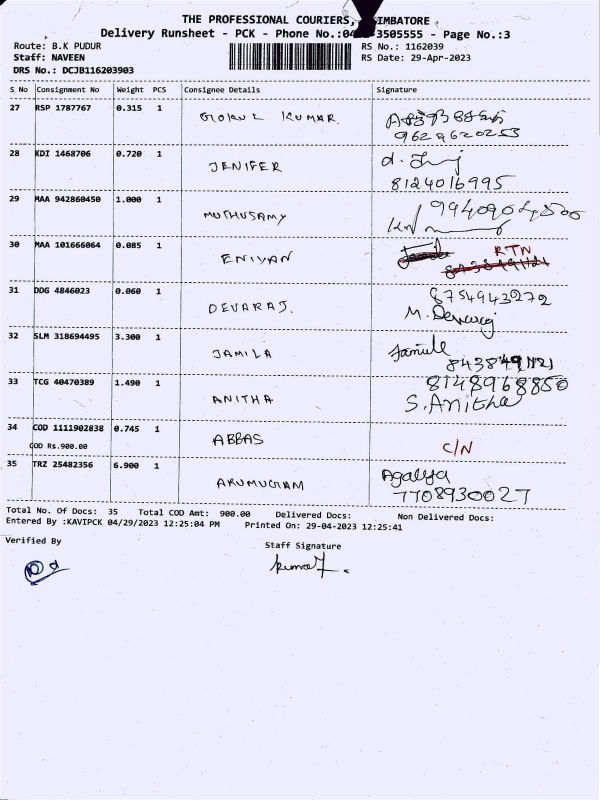 THE PROFESSIONAL COURIERS, IMBATORE
Delivery Runsheet - PCK - Phone No.:04 -3505555 - Page No.:3
Route: B.K PUDUR RS No.: 1162039
Staff: NAVEEN RS Date: 29-Apr-2023
DRS No.: DCJB116203903
S No Consignment No Weight PCS Consignee Details Signature
27 RSP 1787767 0.315 1 GOKUL KUMAR
9629620253
28 KDI 1468706 0.720 1 JENIFER
8124016995
29 MAA 942860450 1.000 1 MUTHUSAMY
30 MAA 101666064 0.085 1 ENIYAN RTN
31 DDG 4846023 0.060 1 DEVARAJ. 8754943272
M. Devaraj
32 SLM 318694495 3.300 1 JAMILA
33 TCG 40470389 1.490 1 ANITHA 8148968850
S.Anitha
34 COD 1111902838 0.745 1 ABBAS
COD Rs.900.00 C/N
35 TRZ 25482356 6.900 1 ARUMUGAM Agalya
7708930027
Total No. Of Docs: 35 Total COD Amt: 900.00 Delivered Docs: Non Delivered Docs:
Entered By :KAVIPCK 04/29/2023 12:25:04 PM Printed On: 29-04-2023 12:25:41
Verified By
Staff Signature